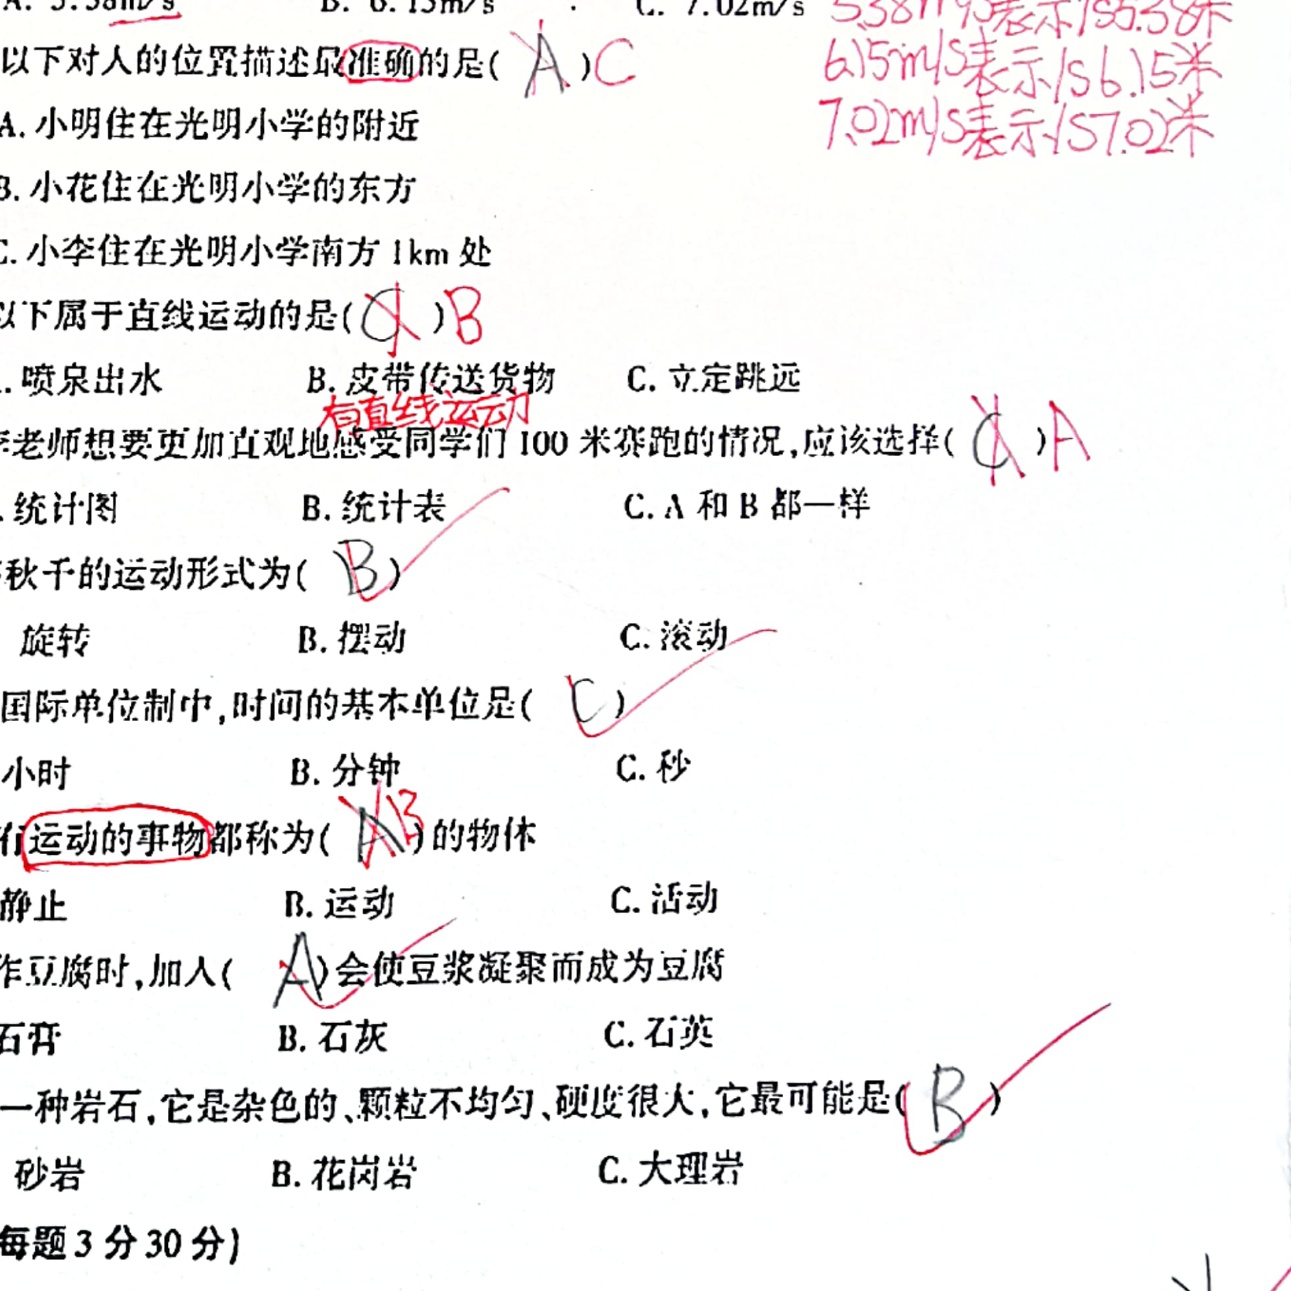 A. 5.38m/s B. 6.15m/s C. 7.02m/s 5.38m/s表示1s5.38米
以下对人的位置描述最准确的是( A )C 6.15m/s表示1s6.15米
A. 小明住在光明小学的附近 7.02m/s表示1s7.02米
B. 小花住在光明小学的东方
C. 小李住在光明小学南方 1km 处
以下属于直线运动的是( C )B
. 喷泉出水 B. 皮带传送货物 C. 立定跳远
有直线运动
李老师想要更加直观地感受同学们 100 米赛跑的情况,应该选择( C )A
. 统计图 B. 统计表 C. A 和 B 都一样
秋千的运动形式为( B )
旋转 B. 摆动 C. 滚动
国际单位制中,时间的基本单位是( C )
小时 B. 分钟 C. 秒
有运动的事物都称为( A B )的物体
静止 B. 运动 C. 活动
作豆腐时,加入( A )会使豆浆凝聚而成为豆腐
石膏 B. 石灰 C. 石英
一种岩石,它是杂色的、颗粒不均匀、硬度很大,它最可能是( B )
砂岩 B. 花岗岩 C. 大理岩
每题 3 分 30 分)